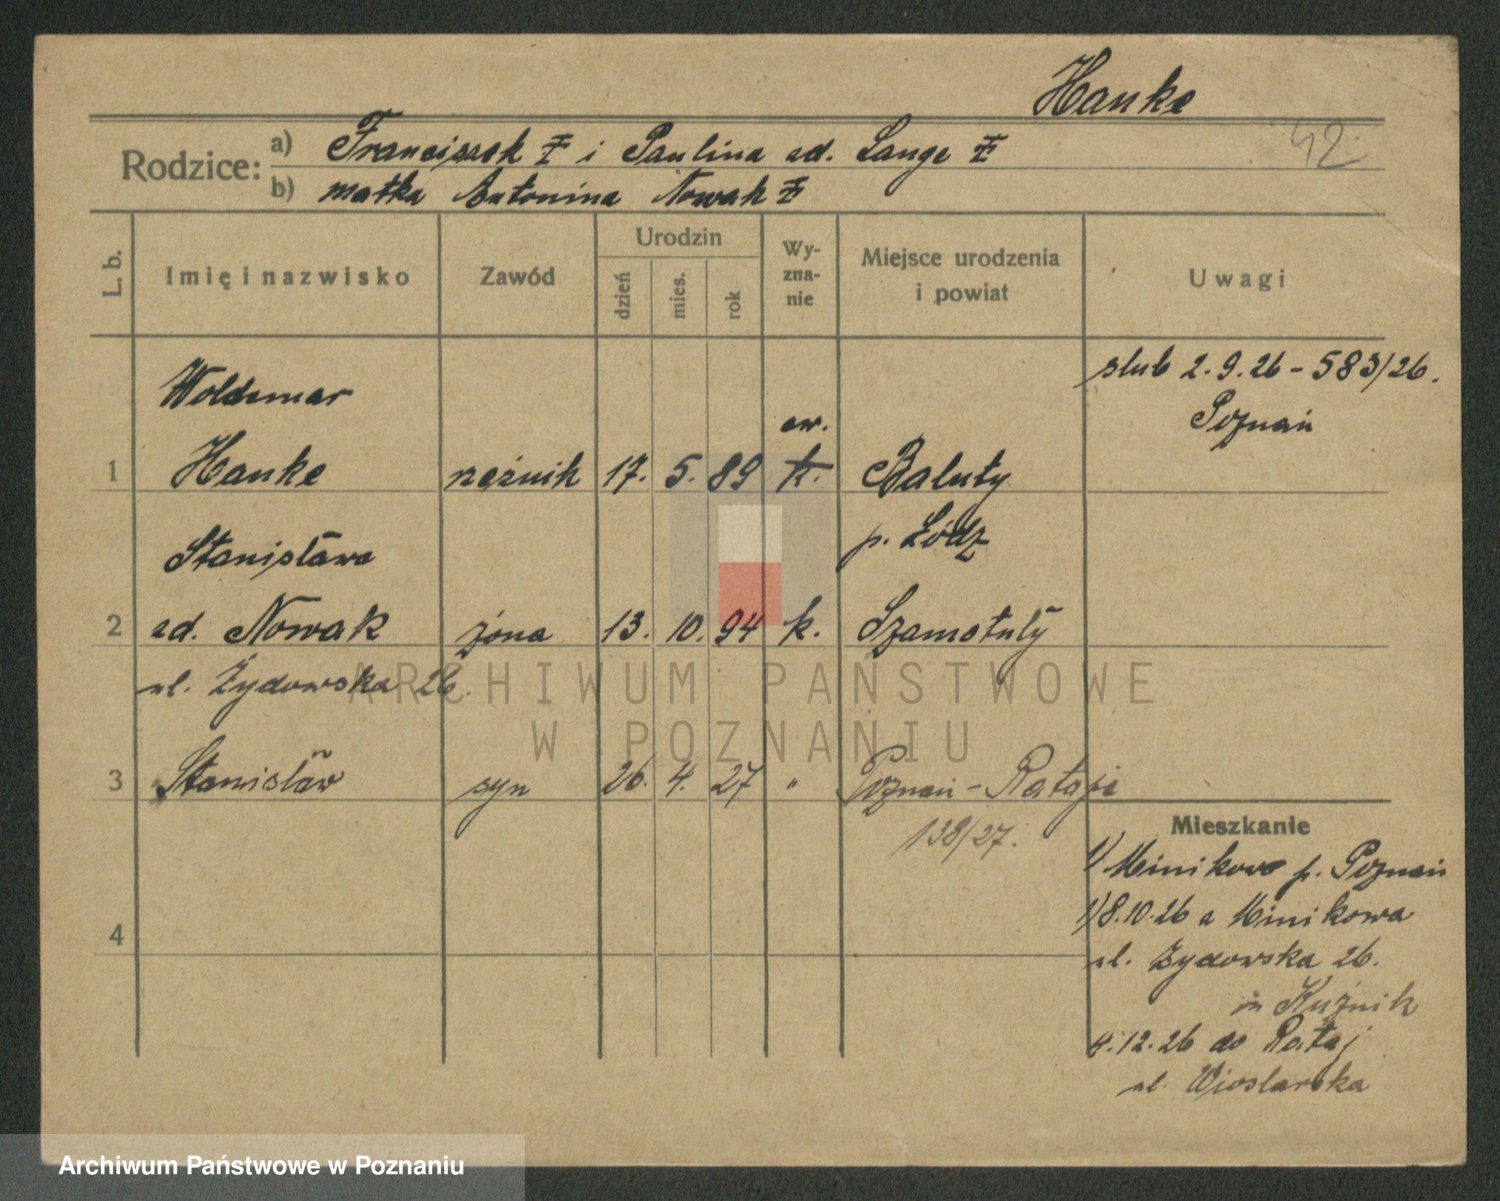 Hanke
42
Rodzice:
a) Franciszek i Paulina zd. Lange
b) matka Antonina Nowak
L. b.
Imię i nazwisko
Zawód
Urodzin
dzień
mies.
rok
Wy-
zna-
nie
Miejsce urodzenia
i powiat
Uwagi
ślub 2.9.26 - 583/26.
Poznań
Woldemar
ew.
1 Hanke rzeźnik 17. 5. 89 k. Bałuty
p. Łódz
Stanisława
2 zd. Nowak żona 13. 10. 94 k. Szamotuły
ul. Żydowska 26
3 Stanisław syn 26. 4. 27 " Poznań - Rataje
138/27.
4
Mieszkanie
1) Minikowo p. Poznań
1) 8.10.26 z Minikowa
ul. Żydowska 26.
Kuźnik
4.12.26 do Rataj
ul. Wioślarska
ARCHIWUM PAŃSTWOWE
W POZNANIU
Archiwum Państwowe w Poznaniu